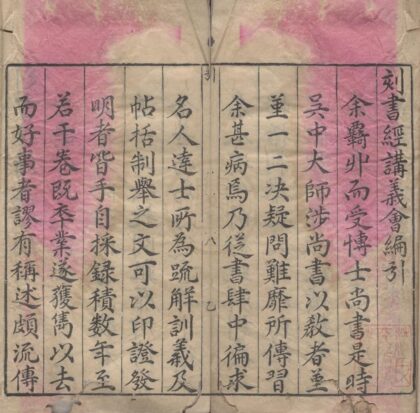 刻書經講義會編引
余覊丱而受博士尚書是時
吳中大師涉尚書以教者堇
堇一二决疑問難靡所傳習
余甚病焉乃從書肆中徧求
引
八
名人達士所為疏解訓義及
帖括制舉之文可以印證發
明者皆手自採錄積數年至
若干卷既卒業遂獲雋以去
而好事者謬有稱述頗流傳